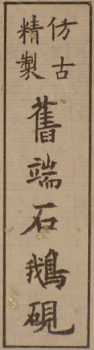 仿古
精製
舊端石鵝硯